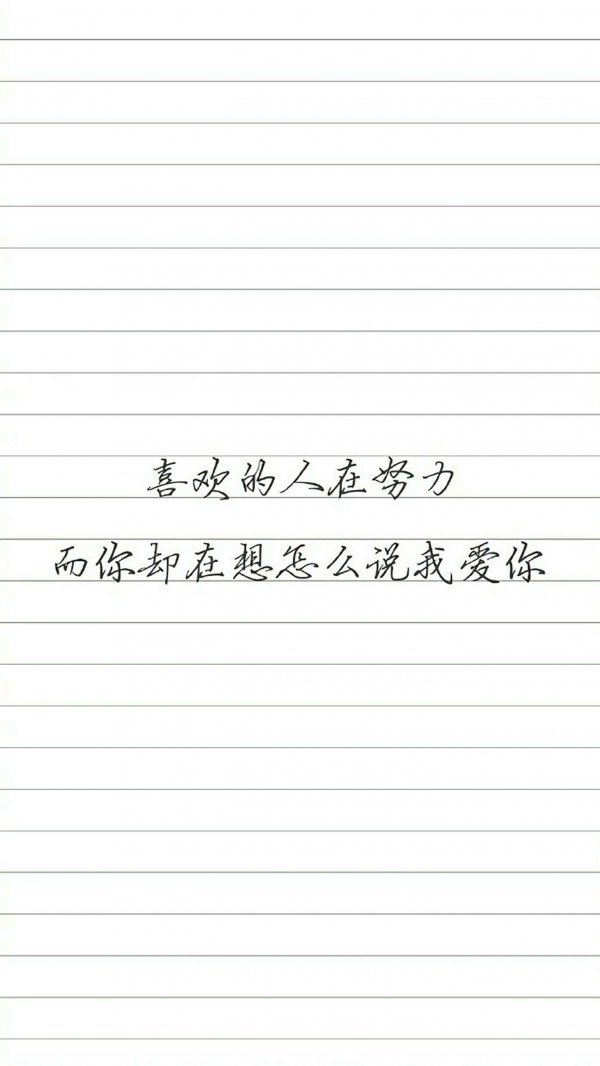 喜欢的人在努力
而你却在想怎么说我爱你